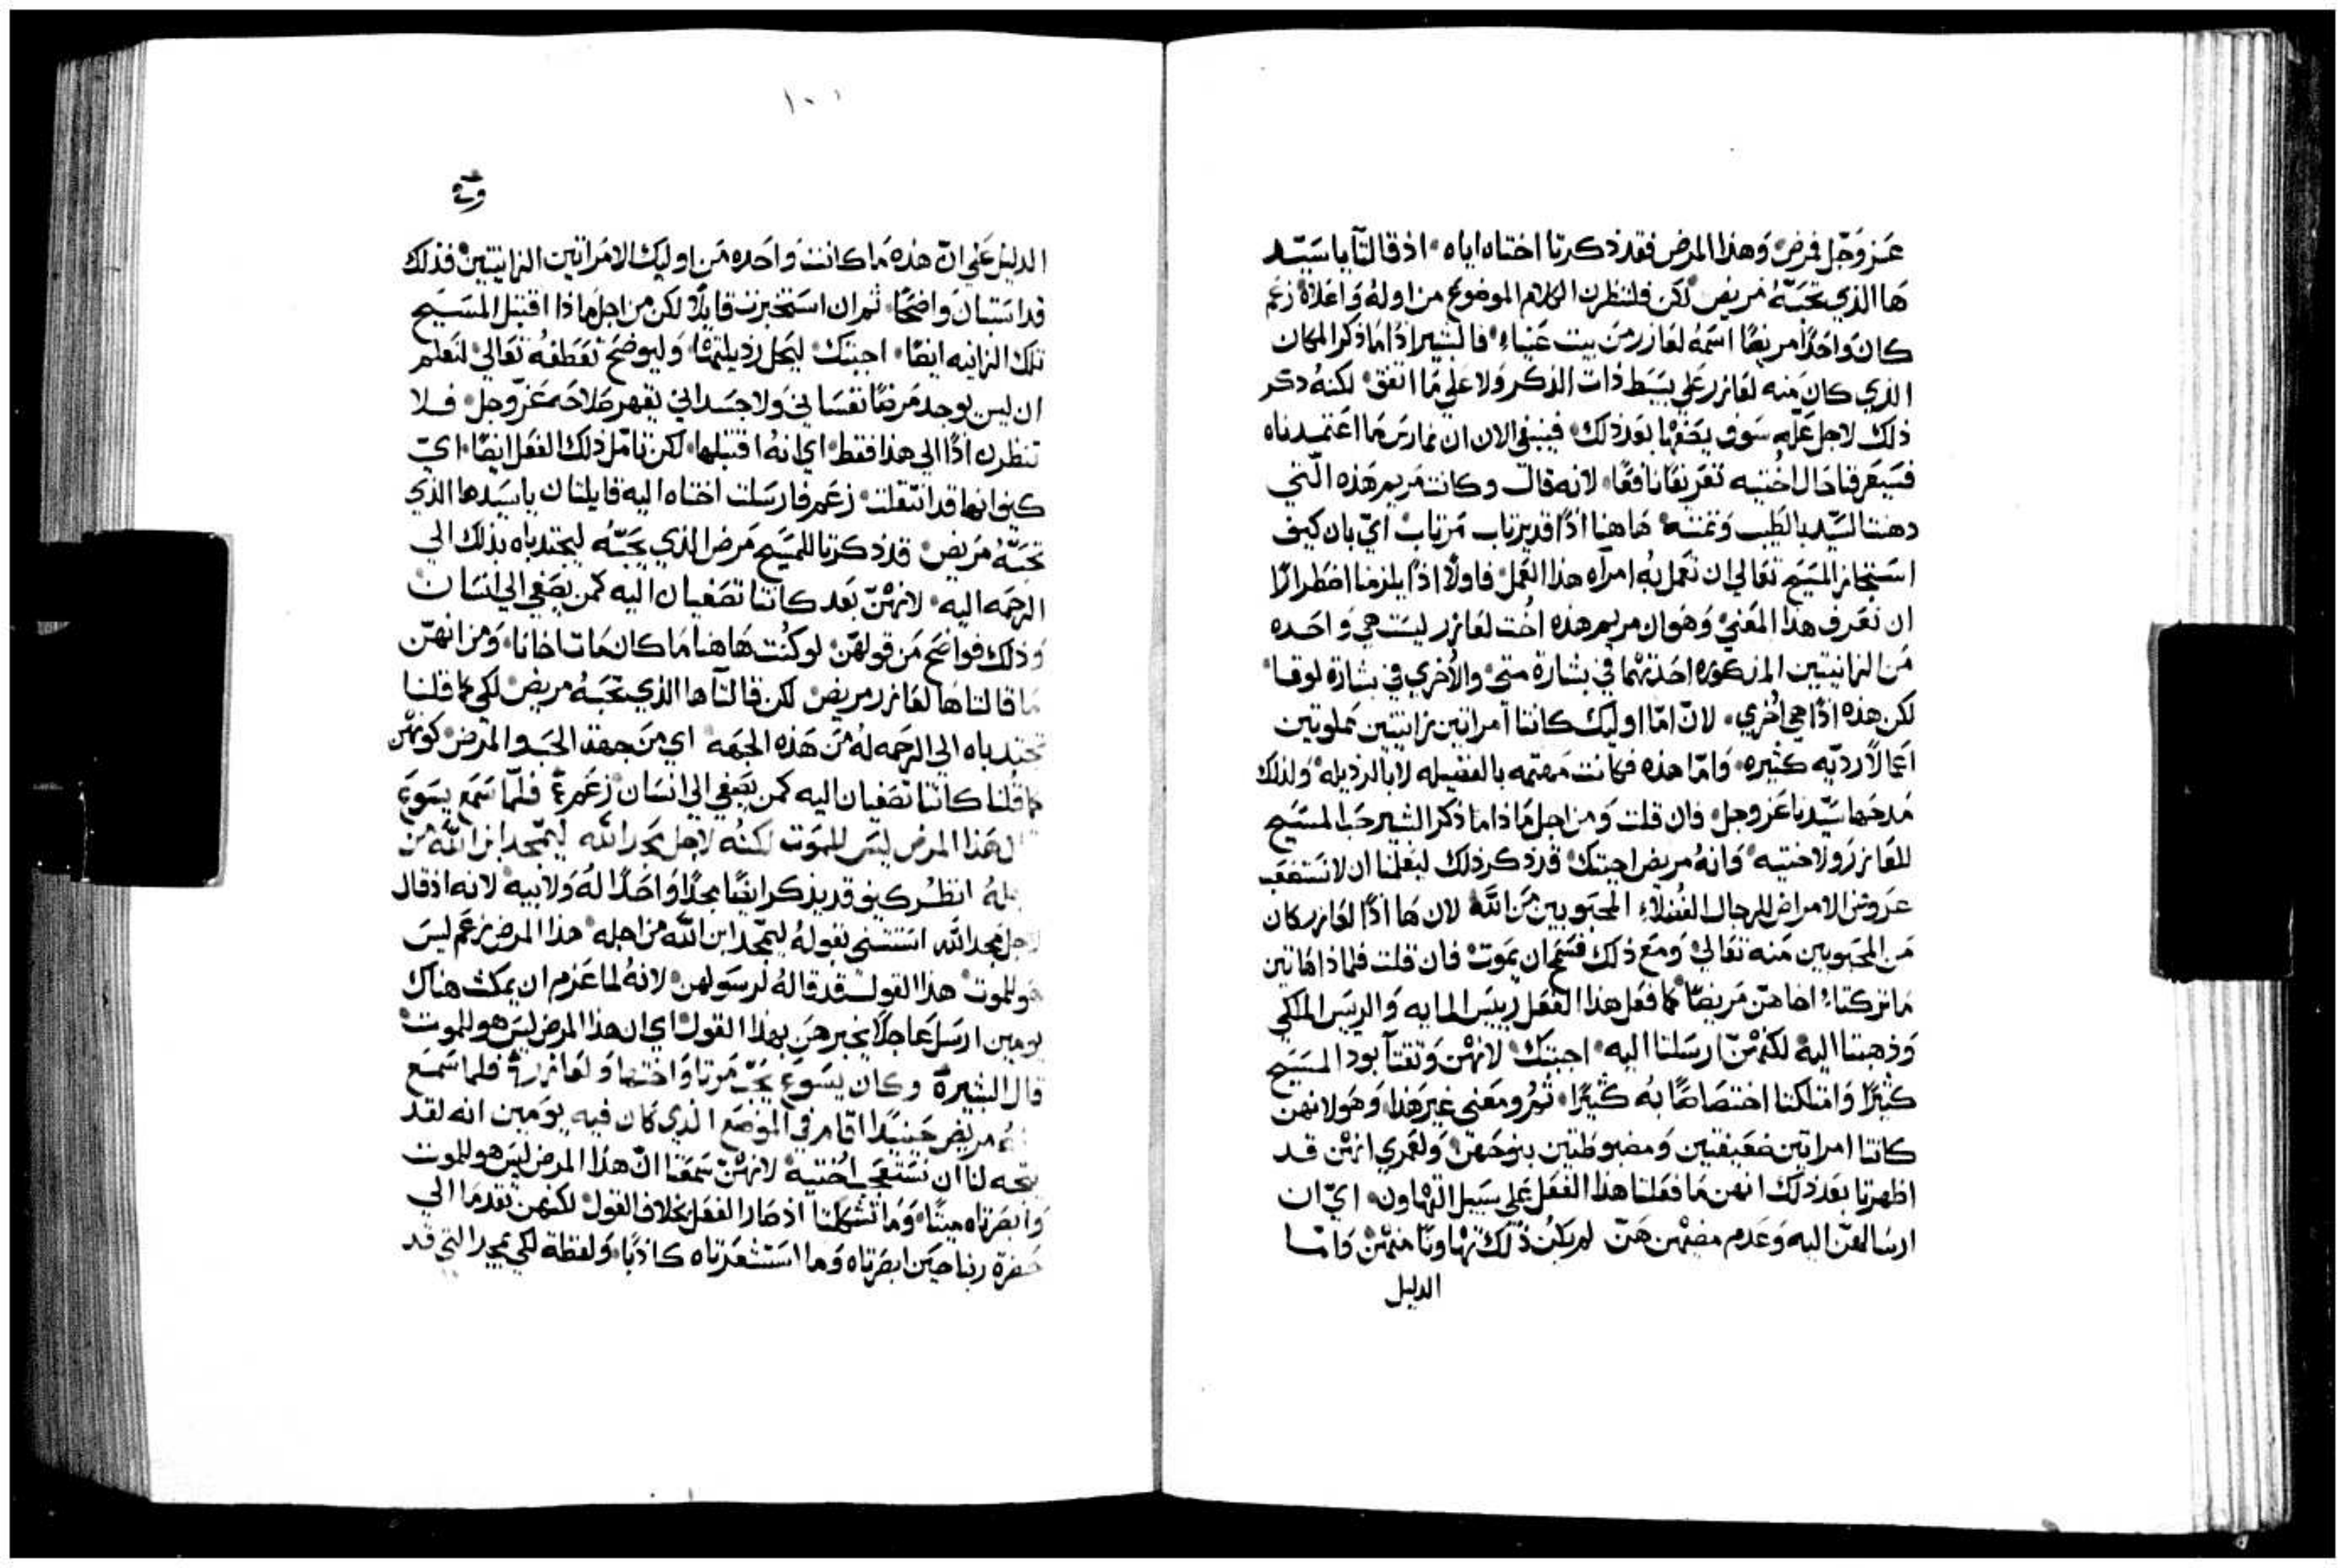 عز وجل فمرض وهذا المرض فقد ذكرتا اختاه اياه اذ قالتا يا سيد
ها الذي تحبه مريض لكن فلننظرن الكلام الموضوع من اوله واعلاه زعم
كان واحدًا مريضًا اسمه لعازر من بيت عنياء فالبشير اذًا ما ذكر المكان
الذي كان منه لعازر علي بسيط ذات الذكر ولا علي ما اتفق لكنه ذكر
ذلك لاجل علهٍ سوف يضعها بعد ذلك فينبغي الان ان نمارس ما اعتمدناه
فسيعرفنا حال اختيه تعريفًا نافعًا لانه قال وكانت مريم هذه التي
دهنت السيد بالطيب وتمته هاهنا اذًا قد يرتاب مرتاب اي بان كيف
استجاز المسيح تعالي ان تعمل به امرآه هذا العمل فاولًا اذًا يلزمنا اضطرارًا
ان نعرف هذا المعني وهو ان مريم هذه اخت لعازر ليست هي واحده
من الزانيتين المذكوره احدتهما في بشارة متي والأخري في بشارة لوقا
لكن هذه اذًا هي أخري لان امّا اوليك كانتا آمراتين زانيتين مملوتين
اعمالًا رديه كثيره وامّا هذه فكانت مهتمه بالفضيله لا بالرذيله ولذلك
مدحها سيدنا عز وجل فان قلت ومن اجل ماذا ما ذكر البشير حب المسيح
للعازر ولاختيه وانه مريض اجبتك قد ذكر ذلك ليعلمنا ان لا نستصعب
عروض الامراض للرجال الفضلاءِ المحبوبين من الله لان ها اذًا لعازر كان
من المحبوبين منه تعالي ومع ذلك فسمح ان يموت فان قلت فلماذا هاتين
ما تركتا اخاهن مريضًا كما فعل هذا الفعل رييس المايه والرييس الملكي
وذهبتا اليه لكنهن ارسلتا اليه اجبتك لانهن وثقتآ بود المسيح
كثيرًا وامتلكتا اختصاصًا به كثيرًا ثم ومعني غير هذا وهو لانهن
كانتا امراتين ضعيفتين ومضبوطتين بنوحهن ولعمري انهن قد
اظهرتا بعد ذلك انهن ما فعلتا هذا الفعل علي سبيل التهاون اي ان
ارسالهن اليه وعدم مضيهن هن لم يكن ذلك تهاونًا منهن وامّا
الدليل
١٠١
الدليل علي ان هذه ما كانت واحده من اوليك الامراتين الزانيتين فذلك
قد استبان واضحًا ثم ان استخبرت قايلًا لكن من اجل ماذا اقتبل المسيح
تلك الزانيه ايضًا اجبتك ليحل رذيلتها وليوضح تعطفه تعالي لتعلم
ان ليس يوجد مرضًا نفساني ولا جسداني يقهر صلاحه عز وجل فلا
تنظرن اذًا الي هذا فقط اي انه اقتبلها لكن تامل ذلك الفعل ايضًا اي
كيف انها قد انتقلت زعم فارسلت اختاه اليه قايلتان يا سيدها الذي
تحبه مريض قد ذكرتا للمسيح مرض الذي يحبه ليجتدباه بذلك الي
الرحمه اليه لانهن بعد كانتا تصغيان اليه كمن يصغي الي انسان
وذلك فواضح من قولهن لو كنت هاهنا ما كان مات اخانا ومن انهن
ما قالتا ها لعازر مريض لكن قالتآ ها الذي تحبه مريض لكي كما قلنا
تجتدباه الي الرحمه له من هذه الجهه اي من جهة الحب والمرض كونهن
كما قلنا كانتا تصغيان اليه كمن يصغي الي انسان زعم فلمّا سمع يسوع
هذا المرض ليس للموت لكنه لاجل مجد الله ليتمجد ابن الله من
انظر كيف قد يذكر ايضًا مجدًا واحدًا له ولابيه لانه اذ قال
لاجل مجد الله استثني بقوله ليتمجد ابن الله من اجله هذا المرض زعم ليس
هو للموت هذا القول قد قاله لرسولهن لانه لما عزم ان يمكث هناك
يومين ارسل عاجلًا يخبرهن بهذا القول اي ان هذا المرض ليس هو للموت
قال البشير وكان يسوع يحب مرتا واختها ولعازر فلما سمع
مريض حينيدًا اقام في الموضع الذي كان فيه يومين انه لقد
يتجه لنا ان نستعجب اختيه لانهن سمعتا ان هذا المرض ليس هو للموت
وابصرتاه ميتًا وما تشككتا اذ صار الفعل بخلاف القول لكنهن تقدمتا الي
حضرة ربنا حين ابصرتاه وما استشعرتاه كاذبًا ولفظة لكي يمجد التي قد